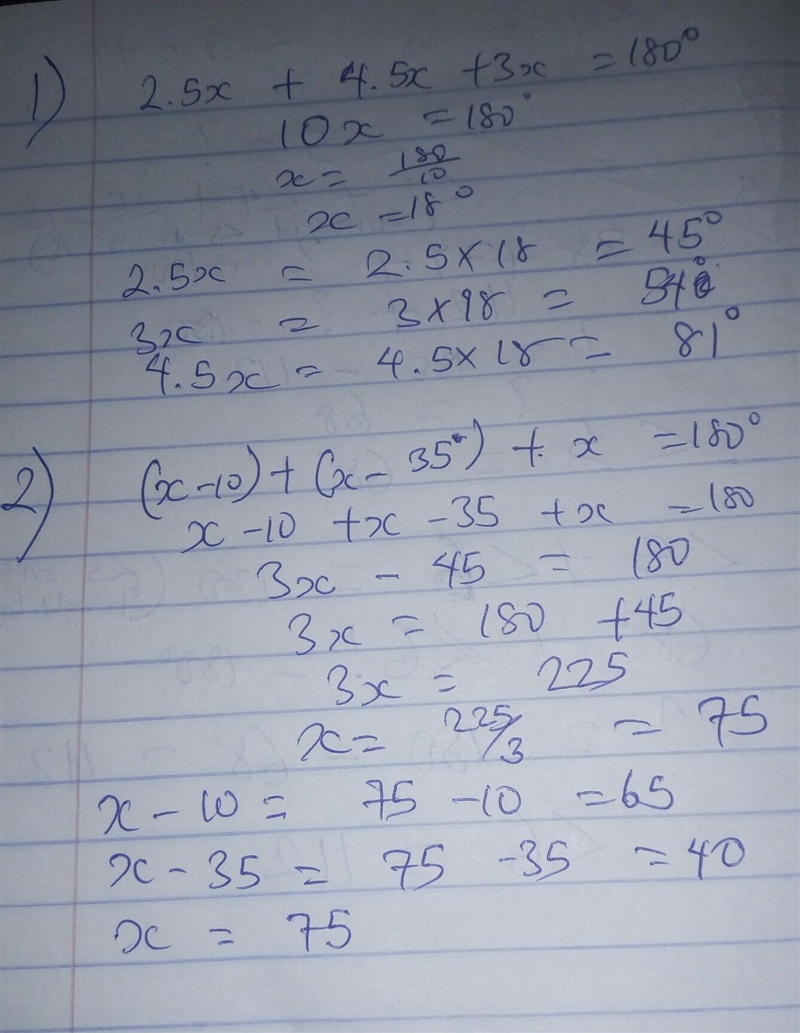 1) 2.5x + 4.5x +3x =180°
10x =180°
x= 180/10
x =18°
2.5x = 2.5×18 =45°
3x = 3×18 = 54°
4.5x = 4.5×18= 81°
2) (x-10)+(x- 35°) + x =180°
x -10 +x -35 +x =180
3x - 45 = 180
3x = 180 +45
3x = 225
x= 225/3 = 75
x - 10 = 75 -10 =65
x - 35 = 75 -35 =40
x = 75